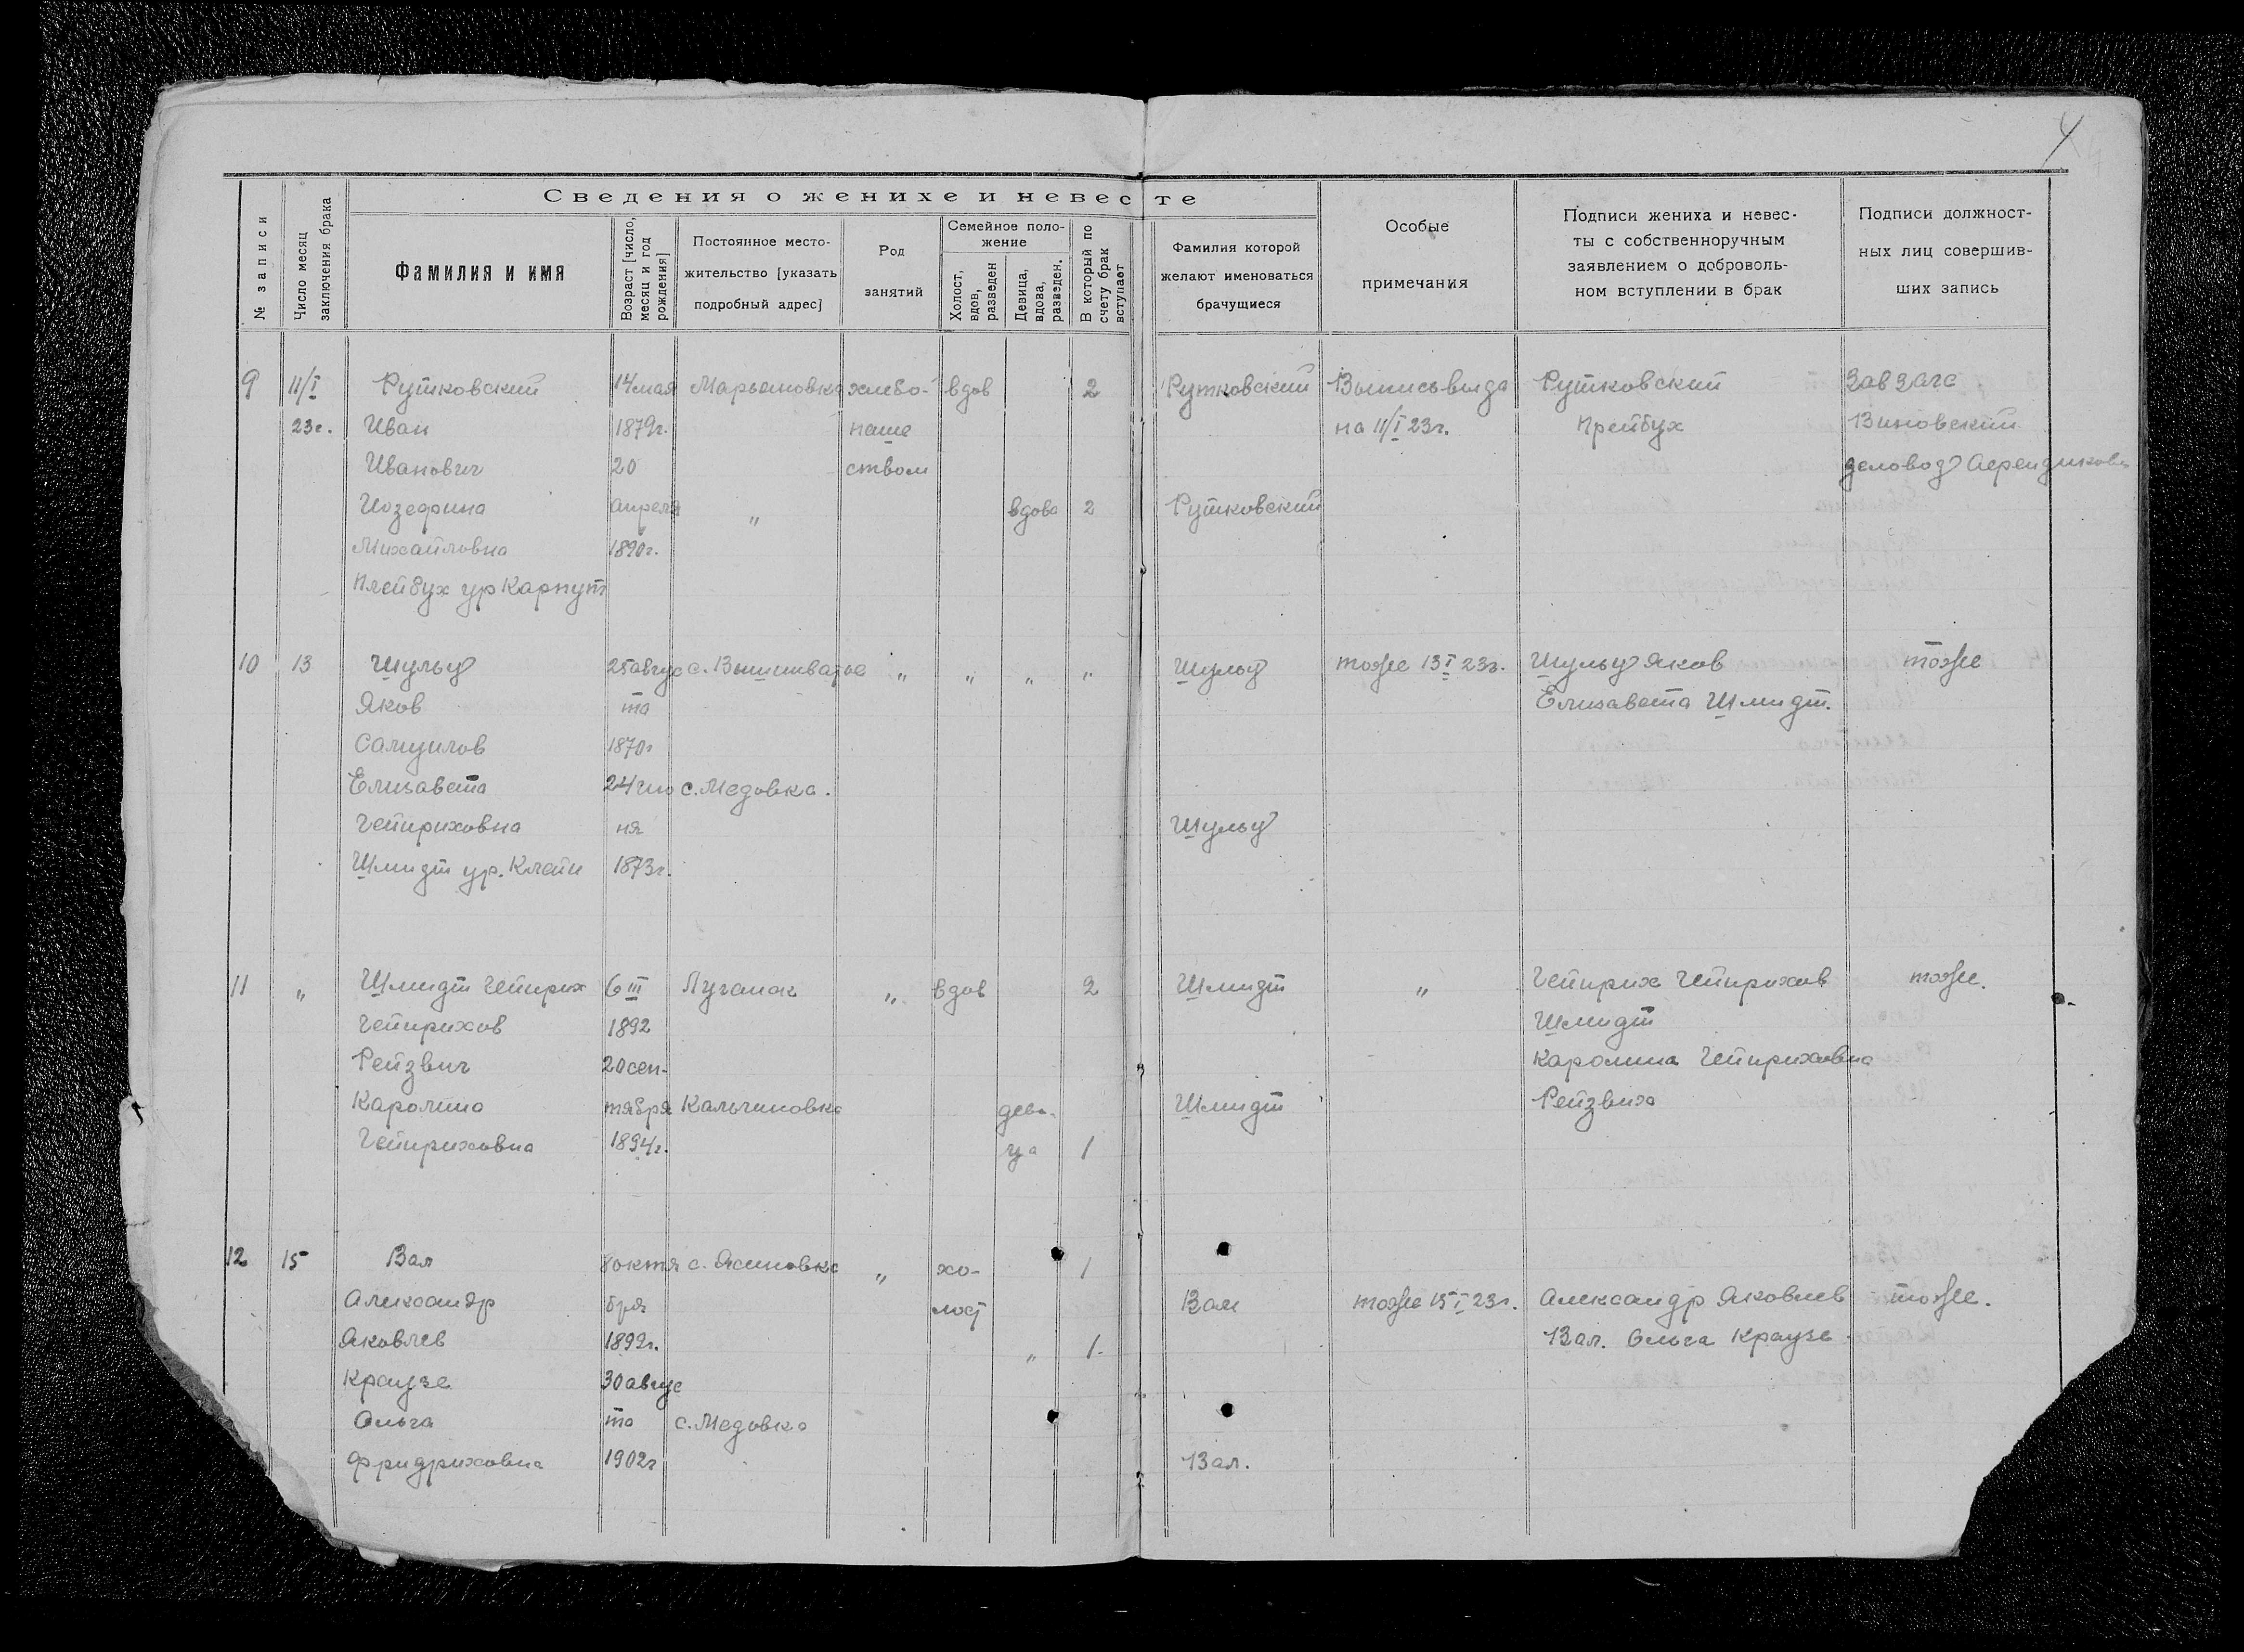 4
Сведения о женихе и невесте
№ записи
Число месяц заключения брака
Фамилия и имя
Возраст [число, месяц и год рождения]
Постоянное место-
жительство [указать
подробный адрес]
Род
занятий
Семейное поло-
жение
Холост, вдов, разведен
Девица, вдова, разведен.
В который по счету брак вступает
Фамилия которой
желают именоваться
брачущиеся
Особые
примечания
Подписи жениха и невес-
ты с собственноручным
заявлением о доброволь-
ном вступлении в брак
Подписи должност-
ных лиц совершив-
ших запись
9 11/I Рутковский 14 мая Марьяновка хлебо- вдов 2 Рутковский Выпись выда Рутковский Зав Загс
23г. Иван 1879г. паше на 11/I 23г. Крейбух Виновский
Иванович 20 ством деловод
Иозефина апреля " вдова 2 Рутковский
Михайловна 1890г.
ур Карпут
10 13 Шульц 25 авгус с. " " " " Шульц тоже 13 I 23г. Шульц Яков тоже
Яков та Елизавета Шмидт.
Самуилов 1870г
Елизавета 24 ию с. Медовка.
Гейнриховна ня Шульц
Шмидт ур. Клейн 1873г.
11 " Шмидт Гейнрих 6 III Луганск " вдов 2 Шмидт " Гейнрих Гейнрихов тоже.
Гейнрихов 1892 Шмидт
Рейзвич 20 сен- Каролина Гейнриховна
Каролина тября Кальчиновка деви- Шмидт Рейзвих
Гейнриховна 1894г. ца 1
12 15 Вал 8 октя с. Ясиновка " хо- 1
Александр бря лост Вал тоже 15 I 23г. Александр Яковлев тоже.
Яковлев 1892г. " 1. Вал. Ольга Краузе
Краузе 30 авгус
Ольга та с. Медовка
Фридриховна 1902г Вал.